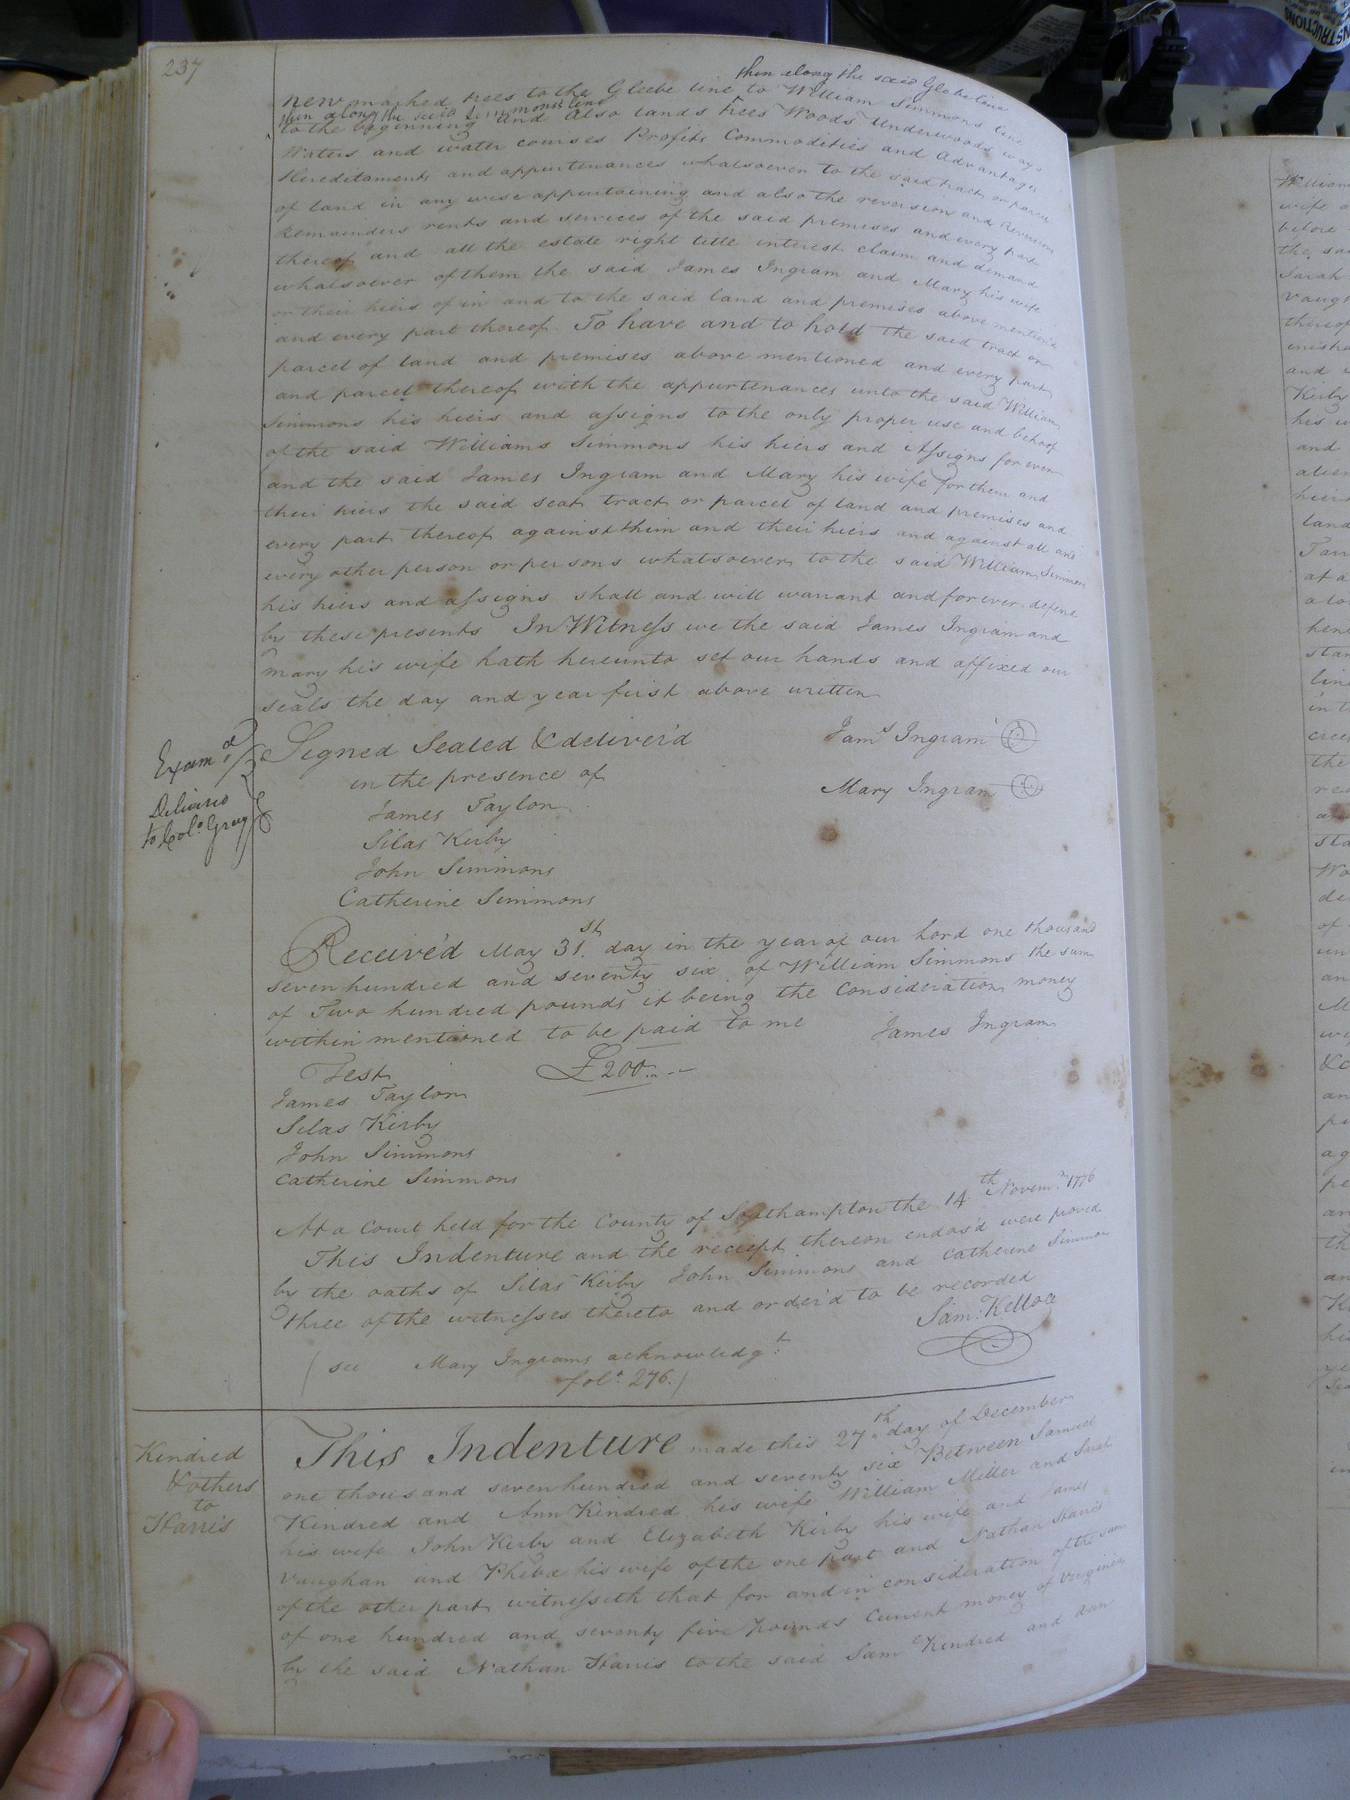 237
then along the said Glebe line
new marked trees to the Glebe line to William Simmons line
then along the said Simmons line
to the beginning and also lands trees Woods Underwoods ways
Waters and water courses Profits Commodities and Advantages
Hereditaments and appurtenances whatsoever to the said tract or parcel
of land in any wise appertaining and also the reversion and reversions
Remainders rents and services of the said premises and every part
thereof and all the estate right title interest claim and demand
whatsoever of them the said James Ingram and Mary his wife
or their heirs of in and to the said land and premises above mention'd
and every part thereof To have and to hold the said tract or
parcel of land and premises above mentioned and every part
and parcel thereof with the appurtenances unto the said William
Simmons his heirs and assigns to the only proper use and behoof
of the said Williams Simmons his heirs and Assigns for ever
and the said James Ingram and Mary his wife for them and
their heirs the said seat tract or parcel of land and premises and
every part thereof against them and their heirs and against all and
every other person or persons whatsoever to the said William Simmons
his heirs and assigns shall and will warrant and forever defend
by these presents In Witness we the said James Ingram and
mary his wife hath hereunto set our hands and affixed our
seals the day and year first above written
Signed Sealed & deliver'd
Jam.s Ingram
in the presence of
Mary Ingram
James Taylor
Silas Kirby
John Simmons
Catherine Simmons
Exam.d
Deliver'd
to Col.o Gray
Received May 31.st day in the year of our Lord one thousand
seven hundred and seventy six of William Simmons the sum
of Two hundred pounds it being the Consideration money
within mentioned to be paid to me James Ingram
Test £200..--
James Taylor
Silas Kirby
John Simmons
Catherine Simmons
At a Court held for the County of Southampton the 14th Novem.r 1776
This Indenture and the receipt thereon endors'd were proved
by the oaths of Silas Kirby John Simmons and Catherine Simmons
three of the witnesses thereto and order'd to be recorded
Sam. Kello
( see Mary Ingrams acknowledg.t
fol.o 276.)
Kindred
& others
to
Harris
This Indenture made this 27.th day of December
one thousand seven hundred and seventy six Between Samuel
Kindred and Ann Kindred his wife William Miller and Sarah
his wife John Kirby and Elizabeth Kirby his wife and James
Vaughan and Pheba his wife of the one part and Nathan Harris
of the other part witnesseth that for and in consideration of the sum
of one hundred and seventy five Pounds Current money of Virginia
by the said Nathan Harris to the said Sam.l Kindred and Ann